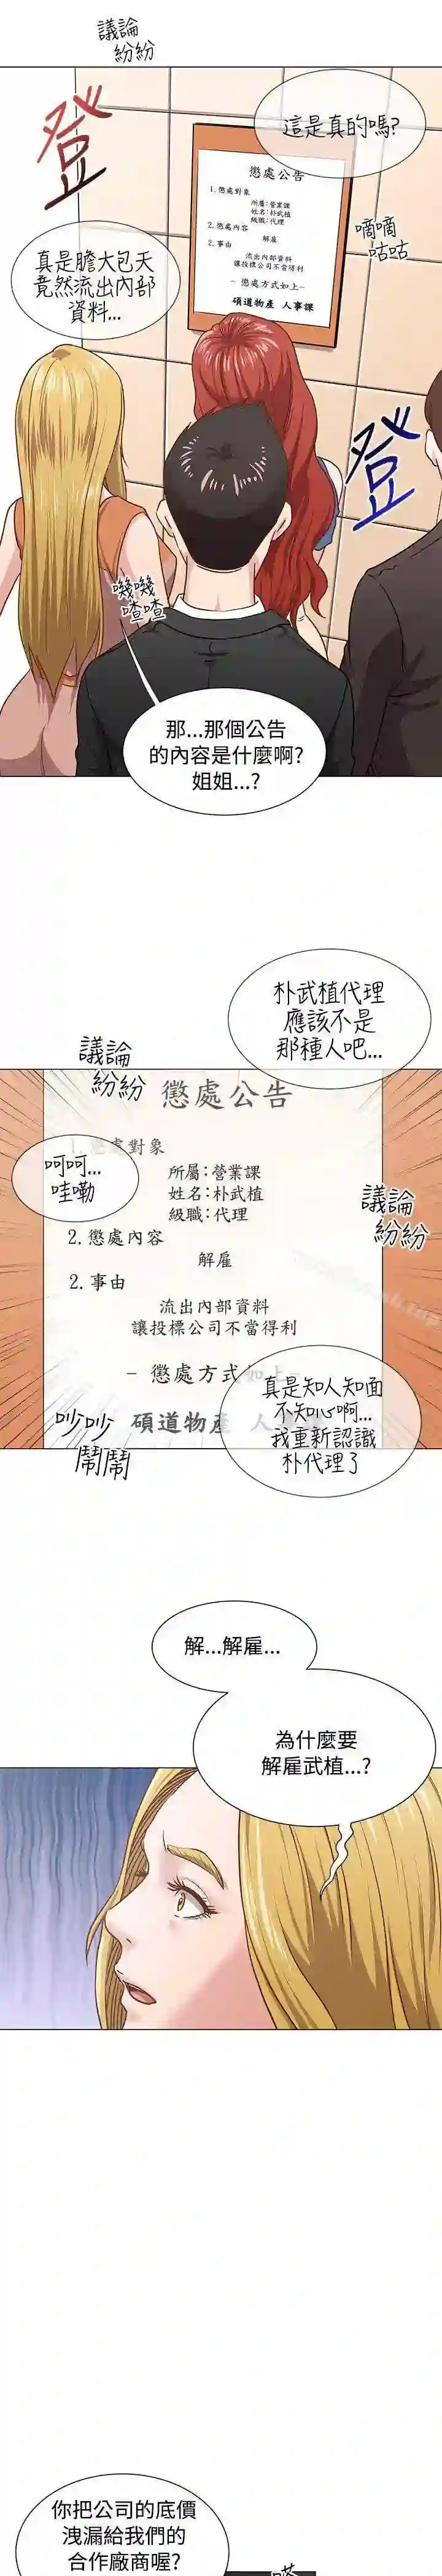 議論
紛紛
登
這是真的嗎?
懲處公告
1.懲處對象
所屬:營業課
姓名:朴武植
級職:代理
2.懲處內容
解雇
2.事由
流出內部資料
讓投標公司不當得利
- 懲處方式如上-
碩道物產 人事課
嘀嘀
咕咕
真是膽大包天
竟然流出內部
資料...
登
嘰嘰
喳喳
那...那個公告
的內容是什麼啊?
姐姐...?
朴武植代理
應該不是
那種人吧...
議論
紛紛
懲處公告
1.懲處對象
呵呵...
哇嘞
所屬:營業課
姓名:朴武植
級職:代理
議論
紛紛
2.懲處內容
解雇
2.事由
流出內部資料
讓投標公司不當得利
- 懲處方式如上-
真是知人知面
不知心啊...
我重新認識
朴代理了
碩道物產 人
吵吵
鬧鬧
解...解雇...
為什麼要
解雇武植...?
你把公司的底價
洩漏給我們的
合作廠商喔?